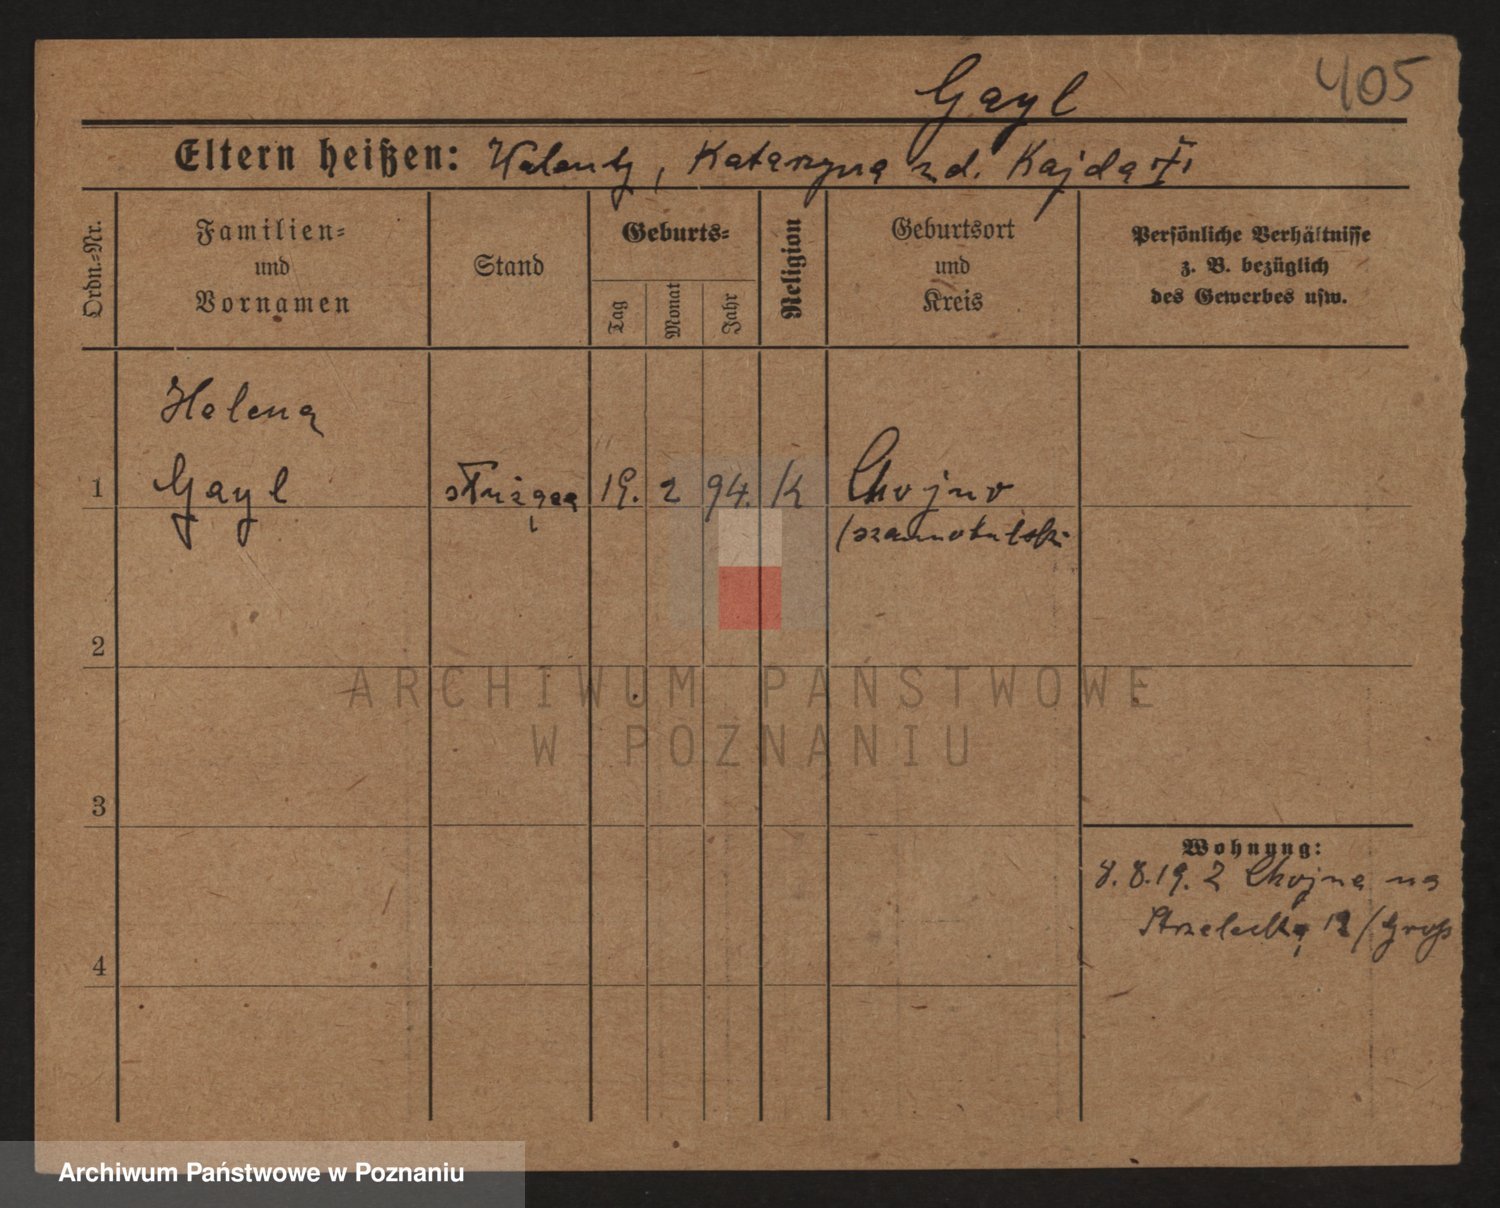 405
Gayl
Eltern heißen: Walenty, Katarzyna zd. Kajda
Ordn.-Nr.
Familien-
und
Vornamen
Stand
Geburts-
Tag
Monat
Jahr
Religion
Geburtsort
und
Kreis
Persönliche Verhältnisse
z. B. bezüglich
des Gewerbes usw.
Helena
1 Gayl służąca 19. 2 94. K Chojno
/szamotulski
2
3
4
Wohnung:
8.8.19. z Chojna na
Strzelecką 12 / Groß
ARCHIWUM PAŃSTWOWE
W POZNANIU
Archiwum Państwowe w Poznaniu